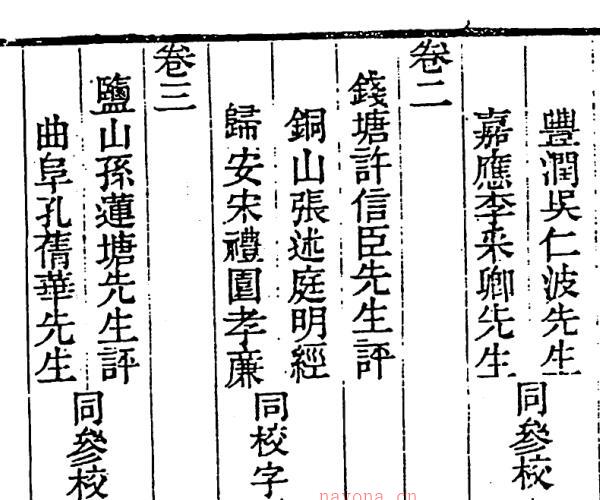 豐潤吳仁波先生
嘉應李采卿先生
同參校
卷二
錢塘許信臣先生評
銅山張述庭明經
歸安宋禮園孝廉
同校字
卷三
鹽山孫蓮塘先生評
曲阜孔蒨華先生
同參校
nayona.cn